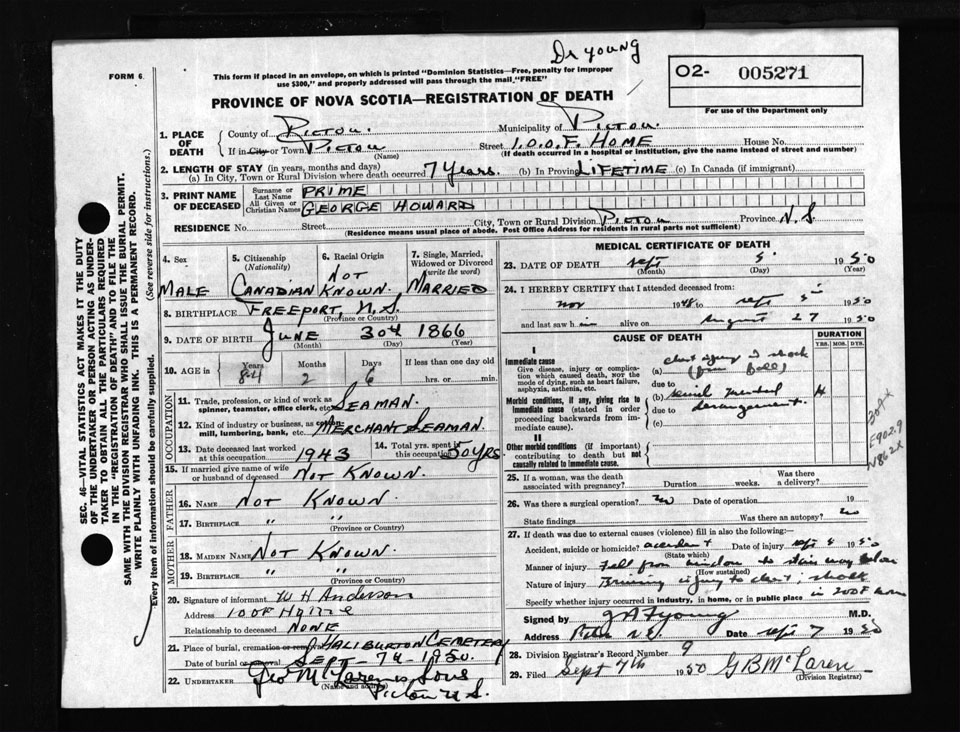 Dr Young
FORM 6
This form if placed in an envelope, on which is printed "Dominion Statistics—Free, penalty for improper
use $300," and properly addressed will pass through the mail, "FREE"
O2- 005271
For use of the Department only
PROVINCE OF NOVA SCOTIA—REGISTRATION OF DEATH
1. PLACE OF DEATH
County of Pictou. Municipality of Pictou.
If in City or Town Pictou (Name) Street I.O.O.F. HOME House No.
(If death occurred in a hospital or institution, give the name instead of street and number)
2. LENGTH OF STAY (in years, months and days)
(a) In City, Town or Rural Division where death occurred 7 Years. (b) In Province LIFETIME (c) In Canada (if immigrant)
3. PRINT NAME OF DECEASED
Surname or Last Name PRIME
All Given or Christian Names GEORGE HOWARD
RESIDENCE No. Street City, Town or Rural Division Pictou Province N.S.
(Residence means usual place of abode. Post Office Address for residents in rural parts not sufficient)
4. Sex MALE
5. Citizenship (Nationality) CANADIAN
6. Racial Origin NOT KNOWN.
7. Single, Married, Widowed or Divorced (write the word) MARRIED
8. BIRTHPLACE FREEPORT, N.S.
(Province or Country)
9. DATE OF BIRTH JUNE 30th 1866
(Month) (Day) (Year)
10. AGE in Years 84 Months 2 Days 6 If less than one day old hrs. or min.
OCCUPATION
11. Trade, profession, or kind of work as spinner, teamster, office clerk, etc. SEAMAN.
12. Kind of industry or business, as cotton mill, lumbering, bank, etc. MERCHANT SEAMAN.
13. Date deceased last worked at this occupation 1943
14. Total yrs. spent in this occupation 50 YRS
15. If married give name of wife or husband of deceased NOT KNOWN.
FATHER
16. NAME NOT KNOWN
17. BIRTHPLACE " "
(Province or Country)
MOTHER
18. MAIDEN NAME NOT KNOWN.
19. BIRTHPLACE " "
(Province or Country)
20. Signature of informant W H Anderson
Address IOOF Home
Relationship to deceased NONE
21. Place of burial, cremation or removal HALIBURTON CEMETERY
Date of burial or removal SEPT - 7th - 1950.
22. UNDERTAKER Geo McLaren & Sons
(Name and address)
Pictou N.S.
MEDICAL CERTIFICATE OF DEATH
23. DATE OF DEATH Sept 5 1950
(Month) (Day) (Year)
24. I HEREBY CERTIFY that I attended deceased from:
Nov 1948 to Sept 5 1950
and last saw him alive on August 27 1950
CAUSE OF DEATH
DURATION
YRS. MOS. DYS.
I
Immediate cause
Give disease, injury or complication which caused death, not the mode of dying, such as heart failure, asphyxia, asthenia, etc.
(a) chest injury & shock
(from fall)
due to
Morbid conditions, if any, giving rise to immediate cause (stated in order proceeding backwards from immediate cause).
(b) senile mental
due to derangement.
(c)
II
Other morbid conditions (if important) contributing to death but not causally related to immediate cause.
E902.9
N862X
25. If a woman, was the death associated with pregnancy? Duration weeks. Was there a delivery?
26. Was there a surgical operation? no Date of operation 19
State findings Was there an autopsy? no
27. If death was due to external causes (violence) fill in also the following:—
Accident, suicide or homicide? accident Date of injury Sept 4 1950
(State which)
Manner of injury Fell from window to
(How sustained)
Nature of injury Bruising injury to chest; shock
Specify whether injury occurred in industry, in home, or in public place in IOOF Home
Signed by Young M.D.
Address Pictou N.S. Date Sept 7 1950
28. Division Registrar's Record Number 9
29. Filed Sept 7th 1950 G B McLaren
(Division Registrar)
SEC. 46—VITAL STATISTICS ACT MAKES IT THE DUTY
OF THE UNDERTAKER OR PERSON ACTING AS UNDERTAKER
TO OBTAIN ALL THE PARTICULARS REQUIRED
IN THE "REGISTRATION OF DEATH" AND TO FILE THE
SAME WITH THE DIVISION REGISTRAR WHO SHALL ISSUE THE BURIAL PERMIT.
WRITE PLAINLY WITH UNFADING INK. THIS IS A PERMANENT RECORD.
Every item of information should be carefully supplied. (See reverse side for instructions.)